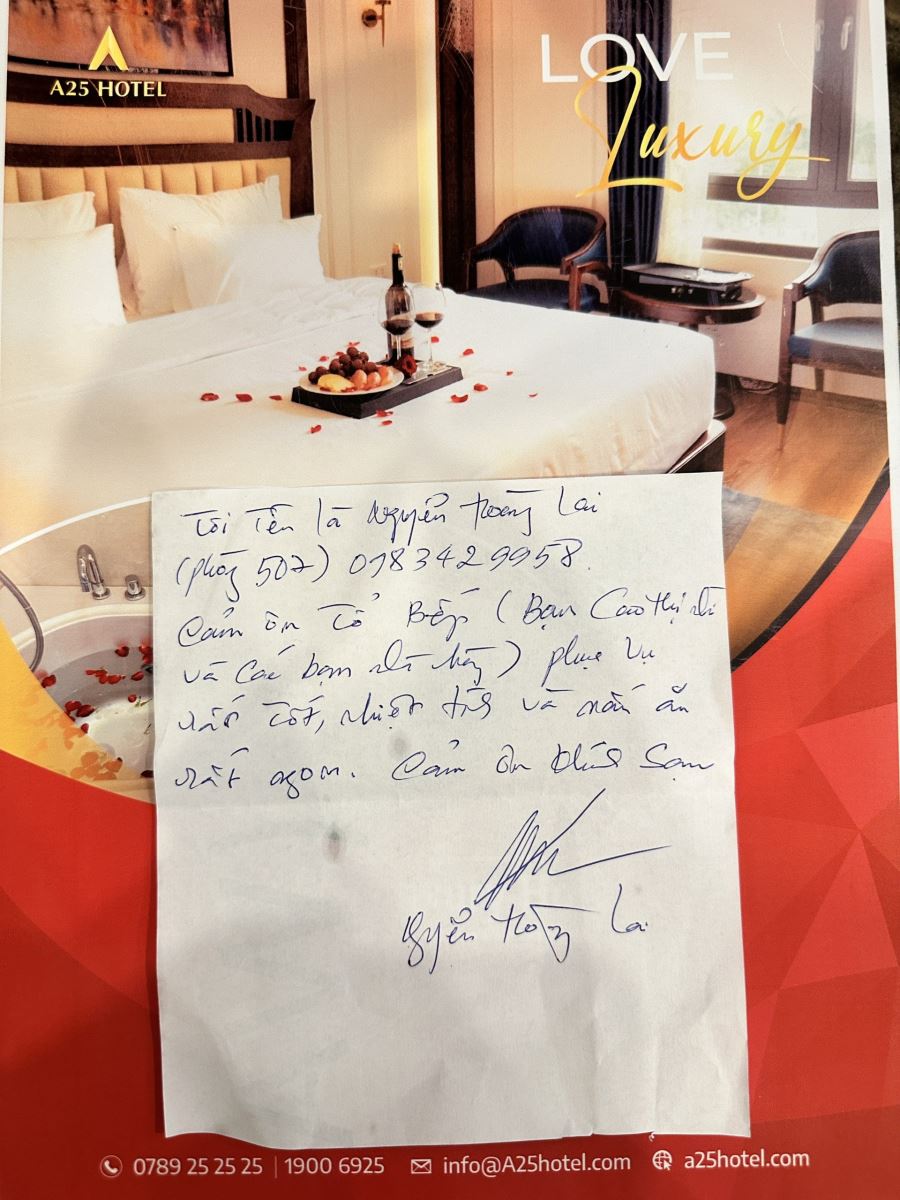 A25 HOTEL
LOVE
Luxury
Tôi Tên là Nguyễn Hoàng Lai
(phòng 507) 0983429958.
Cảm ơn Tổ Bếp (Bạn Cao Thị
và các bạn nhà hàng) phục vụ
rất Tốt, nhiệt tình và nấu ăn
rất ngon. Cảm ơn khách Sạn
Nguyễn Lai
0789 25 25 25 | 1900 6925 info@A25hotel.com a25hotel.com